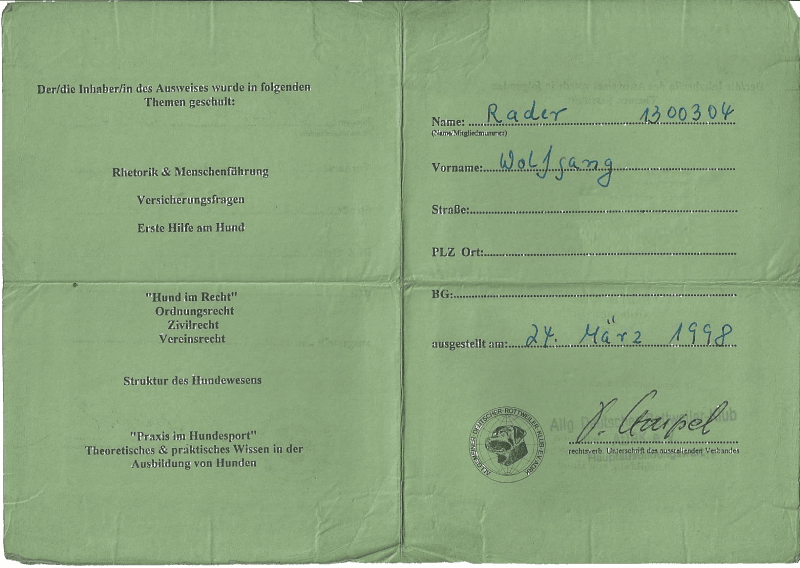 Der/die Inhaber/in des Ausweises wurde in folgenden
Themen geschult:
Rhetorik & Menschenführung
Versicherungsfragen
Erste Hilfe am Hund
"Hund im Recht"
Ordnungsrecht
Zivilrecht
Vereinsrecht
Struktur des Hundewesens
"Praxis im Hundesport"
Theoretisches & praktisches Wissen in der
Ausbildung von Hunden
Name: Rader 1300304
(Name/Mitgliedsnummer)
Vorname: Wolfgang
Straße:
PLZ Ort:
BG:
ausgestellt am: 24. März 1998
Allg. Deutscher Rottweiler-Klub
ALLGEMEINER DEUTSCHER ROTTWEILER-KLUB
rechtsverb. Unterschrift des ausstellenden Verbandes